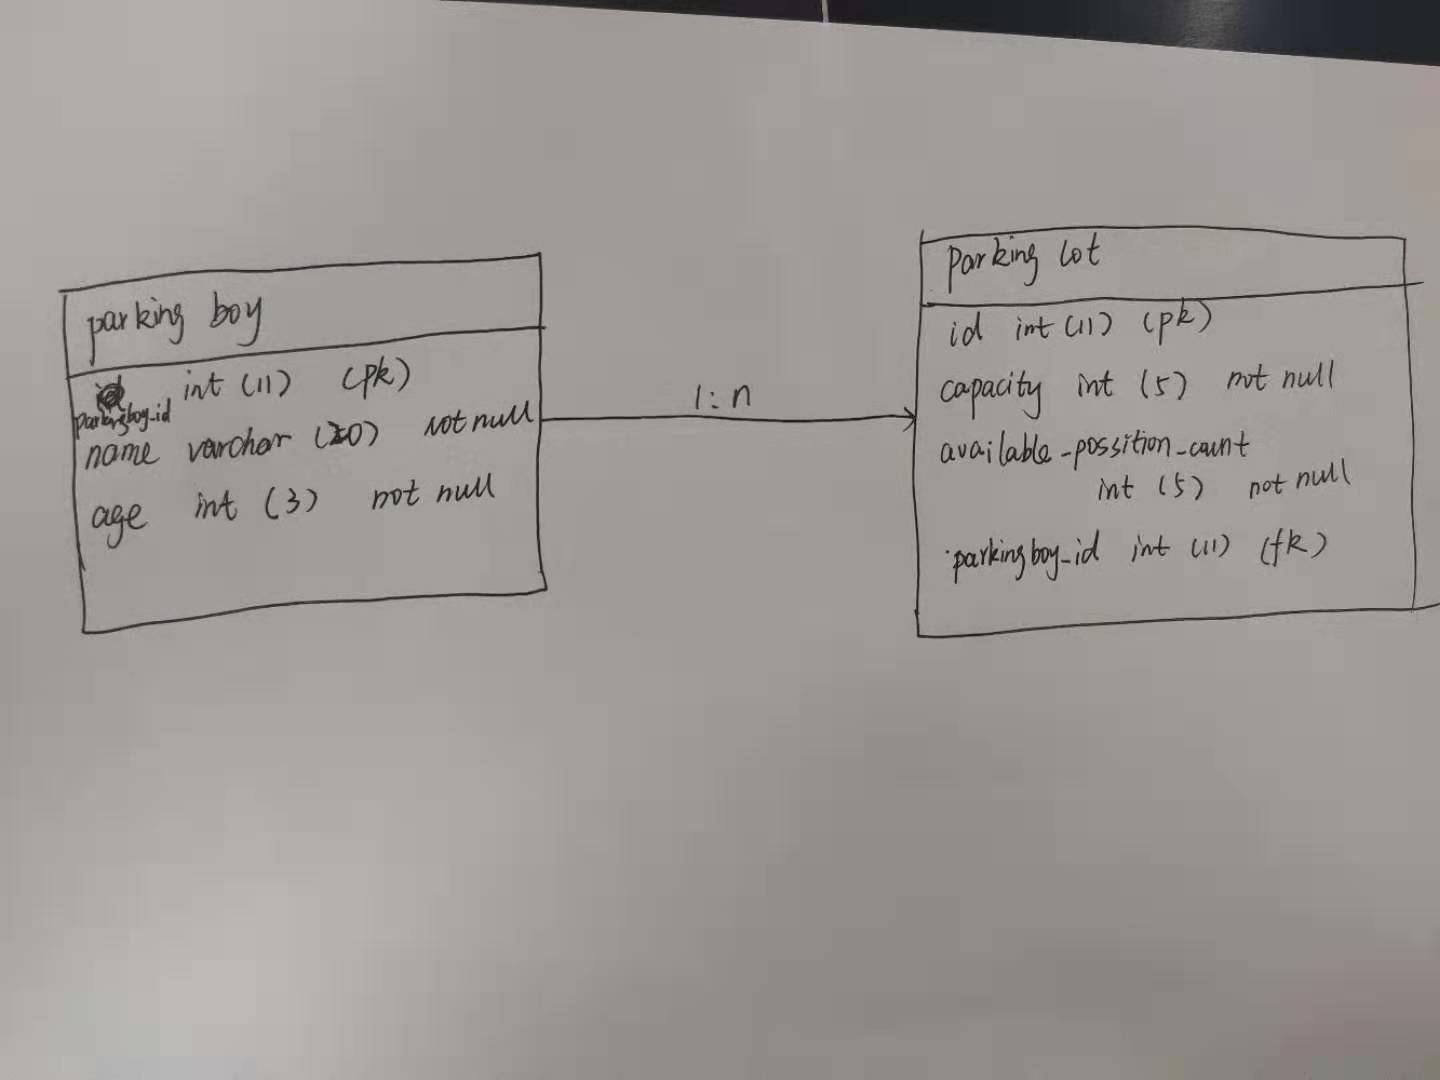 parking boy
int (11) (pk)
parkingboy_id
name varchar (20) not null
age int (3) not null
1:n
parking lot
id int (11) (pk)
capacity int (5) not null
available_possition_count
int (5) not null
parkingboy_id int (11) (fk)